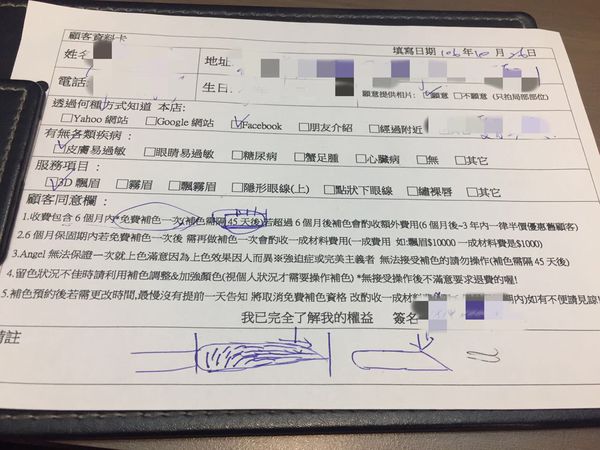 顧客資料卡
填寫日期 106年10月26日
姓名
地址
電話
生日
願意提供相片: ☑願意 □不願意 (只拍局部部位)
透過何種方式知道 本店:
□Yahoo 網站 □Google 網站 ☑Facebook □朋友介紹 □經過附近
有無各類疾病:
☑皮膚易過敏 □眼睛易過敏 □糖尿病 □蟹足腫 □心臟病 □無 □其它
服務項目:
☑3D 飄眉 □霧眉 □飄霧眉 □隱形眼線(上) □點狀下眼線 □繡裸唇 □其它
顧客同意欄:
1.收費包含 6 個月內*免費補色一次(補色需隔 45 天後)若超過 6 個月後補色會酌收額外費用(6 個月後~3 年內一律半價優惠舊顧客)
2.6 個月保固期內若免費補色一次後 需再做補色一次會酌收一成材料費用(一成費用 如:飄眉$10000 一成材料費是$1000)
3.Angel 無法保證一次就上色滿意因為上色效果因人而異※強迫症或完美主義者 無法接受補色的請勿操作(補色需隔 45 天後)
4.留色狀況不佳時請利用補色調整&加強顏色(視個人狀況才需要操作補色) *無接受操作後不滿意要求退費的喔!
5.補色預約後若需更改時間,最慢沒有提前一天告知 將取消免費補色資格 改酌收一成材料 期內)如有不便請見諒!
我已完全了解我的權益 簽名
備註